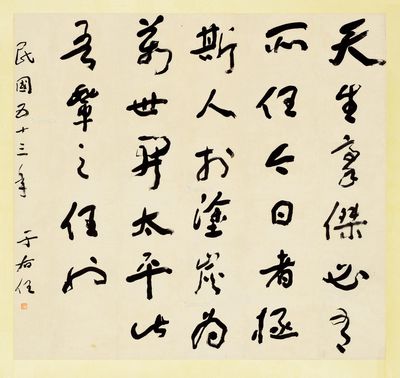 天生豪傑必有
所任今日者極
斯人於塗炭為
萬世開太平此
吾輩之任也
民國五十三年 于右任